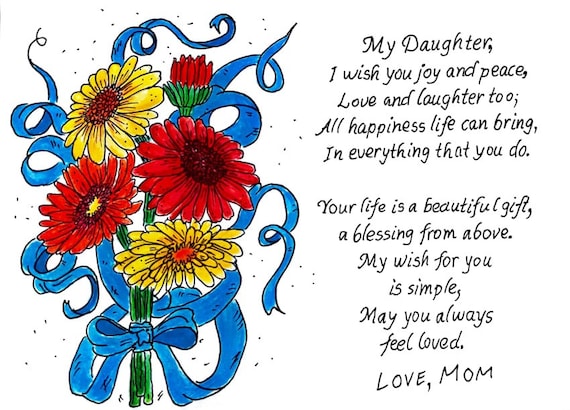 My Daughter,
I wish you joy and peace,
Love and laughter too;
All happiness life can bring,
In everything that you do.
Your life is a beautiful gift,
a blessing from above.
My wish for you
is simple,
May you always
feel loved.
LOVE, MOM